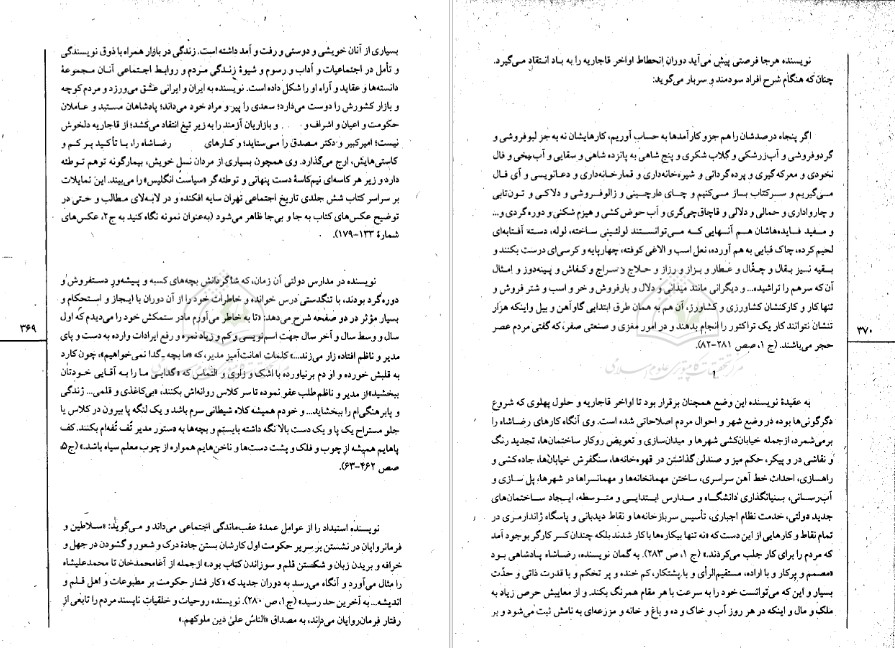 بسیاری از آنان خویشی و دوستی و رفت و آمد داشته است. زندگی در بازار همراه با ذوق نویسندگی
و تأمل در اجتماعیات و آداب و رسوم و شیوهٔ زندگی مردم و روابط اجتماعی آنان مجموعهٔ
دانسته‌ها و عقاید و آراء او را شکل داده است. نویسنده به ایران و ایرانی عشق می‌ورزد و مردم کوچه
و بازار کشورش را دوست می‌دارد؛ سعدی را پیر و مراد خود می‌داند؛ پادشاهان مستبد و عاملان
حکومت و اعیان و اشراف و و بازاریان آزمند را به زیر تیغ انتقاد می‌کشد؛ از قاجاریه دلخوش
نیست؛ امیرکبیر و دکتر مصدق را می‌ستاید؛ و کارهای رضاشاه را، با تأکید بر کم و
کاستی‌هایش، ارج می‌گذارد. وی همچون بسیاری از مردان نسل خویش، بیمارگونه توهم توطئه
دارد و زیر هر کاسه‌ای نیم‌کاسهٔ دست پنهانی و توطئه‌گر «سیاست انگلیس» را می‌بیند. این تمایلات
بر سراسر کتاب شش جلدی تاریخ اجتماعی تهران سایه افکنده و در لابه‌لای مطالب و حتی در
توضیح عکس‌های کتاب به جا و بی‌جا ظاهر می‌شود (به‌عنوان نمونه نگاه کنید به ج۲، عکس‌های
شمارهٔ ۱۳۳-۱۷۹).
نویسنده در مدارس دولتی آن زمان، که شاگردانش بچه‌های کسبه و پیشه‌ور و دستفروش و
دوره‌گرد بودند، با تنگدستی درس خوانده و خاطرات خود را از آن دوران با ایجاز و استحکام و
بسیار مؤثر در دو صفحه شرح می‌دهد: «تا به خاطر می‌آورم مادر ستمکش خود را می‌دیدم که اول
سال و وسط سال و آخر سال جهت اسم‌نویسی و کم و زیاد نمره و رفع ایرادات وارده به دست و پای
مدیر و ناظم افتاده زار می‌زند...» کلمات اهانت‌آمیز مدیر، که «ما بچه گدا نمی‌خواهیم»، چون کارد
به قلبش خورده و او دم برنیاورده با اشک و زاری و التماس که «گدایی ما را به آقایی خودتان
ببخشید» از مدیر و ناظم طلب عفو نموده تا سر کلاس روانه‌اش بکنند، «بی‌کاغذی و قلمی... زندگی
و پابرهنگی‌ام را ببخشاید... و خودم همیشه کلاه شیطانی سرم باشد و یک لنگه پا بیرون در کلاس یا
جلو مستراح یک پا و یک دست بالا نگه داشته بایستم و بچه‌ها به دستور مدیر تُف تُفه‌ام بکنند. کف
پاهایم همیشه از چوب و فلک و پشت دست‌ها و ناخن‌هایم همواره از چوب معلم سیاه باشد.» (ج۵،
صص ۴۶۲-۶۳).
نویسنده استبداد را از عوامل عمدهٔ عقب‌ماندگی اجتماعی می‌داند و می‌گوید: «سلاطین و
فرمانروایان در نشستن بر سریر حکومت اول کارشان بستن جادهٔ درک و شعور و گشودن در جهل و
خرافه و بریدن زبان و شکستن قلم و سوزاندن کتاب بود.» از جمله از آغامحمدخان تا محمدعلیشاه
را مثال می‌آورد و آنگاه می‌رسد به دوران جدید که «کار فشار حکومت بر مطبوعات و اهل قلم و
اندیشه... به آخرین حد رسید» (ج۱، ص ۲۸۰). نویسنده روحیات و خلقیات ناپسند مردم را تابعی از
رفتار فرمان‌روایان می‌داند، به مصداق «النّاس علیٰ دین ملوکهم.»
۳۶۹
نویسنده هرجا فرصتی پیش می‌آید دوران انحطاط اواخر قاجاریه را به باد انتقاد می‌گیرد.
چنان که هنگام شرح افراد سودمند و سربار می‌گوید:
اگر پنجاه درصدشان را هم جزو کارآمدها به حساب آوریم، کارهایشان نه به جز لبوفروشی و
گردوفروشی و آب‌زرشکی و گلاب شکری و پنج شاهی به پانزده شاهی و سقایی و آب‌یخی و فال
نخودی و معرکه‌گیری و پرده‌گردانی و شیره‌خانه‌داری و قمارخانه‌داری و دعانویسی و آی فال
می‌گیریم و سرکتاب باز می‌کنیم و چای دارچینی و زالوفروشی و دلاکی و تون‌تابی
و چارواداری و حمالی و دلالی و قاچاق‌چی‌گری و آب حوض‌کشی و هیزم شکنی و دوره گردی و...
و مفید فایده‌هاشان هم آنهایی که می‌توانستند لولئینی ساخته، لوله، دسته آفتابه‌ای
لحیم کرده، چاک قبایی به هم آورده، نعل اسب و الاغی کوفته، چهارپایه و کرسی‌ای درست بکنند و
بقیه نیز بقال و چقال و عطار و بزاز و رزاز و حلاج و سراج و کفاش و پینه‌دوز و امثال
آن که سر هم را تراشیده،... و دیگرانی مانند میدانی و دلال و بارفروش و خر و اسب و شتر فروش و
تنها کار و کارکنشان کشاورزی و کشاورز، آن هم به همان طرق ابتدایی گاوآهن و بیل و اینکه هزار
تنشان نتوانند کار یک تراکتور را انجام بدهند و در امور مغزی و صنعتی صفر، که گفتی مردم عصر
حجر می‌باشند. (ج ۱، صص ۲۸۱-۸۲).
به عقیدهٔ نویسنده این وضع همچنان برقرار بود تا اواخر قاجاریه و حلول پهلوی که شروع
دگرگونی‌ها بوده در وضع شهر و احوال مردم اصلاحاتی شده است. وی آنگاه کارهای رضاشاه را
برمی‌شمرد: ازجمله خیابان‌کشی شهرها و میدان‌سازی و تعویض روکار ساختمان‌ها، تجدید رنگ
و نقاشی در و پیکر، حکم میز و صندلی گذاشتن در قهوه‌خانه‌ها، سنگفرش خیابان‌ها، جاده‌کشی و
راهسازی، احداث خط آهن سراسری، ساختن مهمانخانه‌ها و مهمانسراها در شهرها، پل‌سازی و
آب‌رسانی، بنیانگذاری دانشگاه و مدارس ابتدایی و متوسطه، ایجاد ساختمان‌های
جدید دولتی، خدمت نظام اجباری، تأسیس سربازخانه‌ها و نقاط دیدبانی و پاسگاه ژاندارمری در
تمام نقاط و کارهایی از این دست که «نه تنها بیکارها با کار شدند بلکه چندان کسر کارگر بوجود آمد
که مردم را برای کار جلب می‌کردند.» (ج ۱، ص ۲۸۳). به گمان نویسنده، رضاشاه پادشاهی بود
«مصمم و پرکار و با اراده، مستقیم‌الرأی و با پشتکار، کم خنده و پر تحکم و با قدرت ذاتی و حدّت
بسیار و این که می‌توانست خود را به سرعت با هر مقام همرنگ بکند. و از معایبش حرص زیاد به
ملک و مال و اینکه در هر روز آب و خاک و ده و باغ و خانه و مزرعه‌ای به نامش ثبت می‌شود و بر
۳۷۰